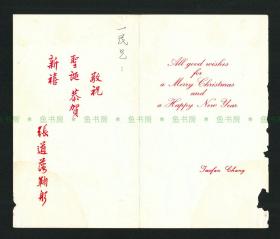 一民兄：
敬祝
聖誕 恭賀
新禧
張道藩鞠躬
All good wishes
for
a Merry Christmas
and
a Happy New Year
Taofan Chang